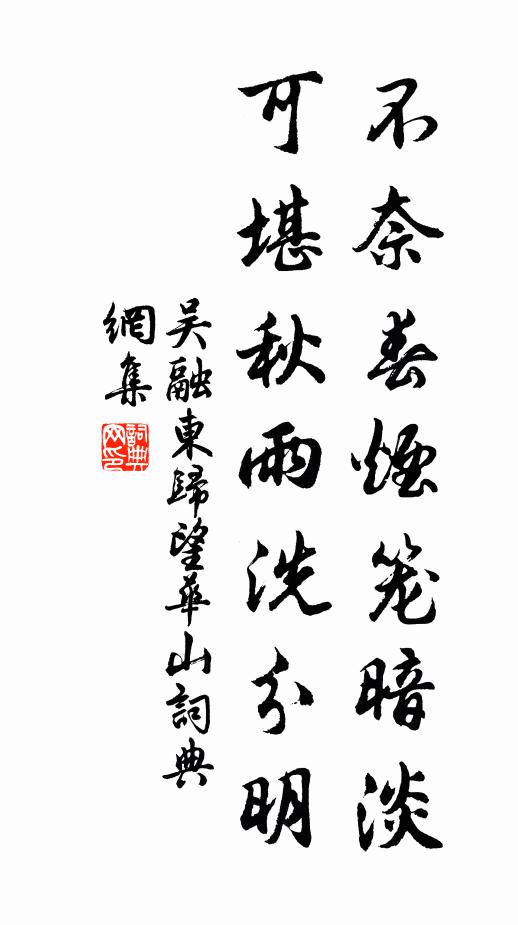 不奈春煙笼暗淡
可堪秋雨洗分明
吴融東歸望華山詞典
網集
詞典
网印